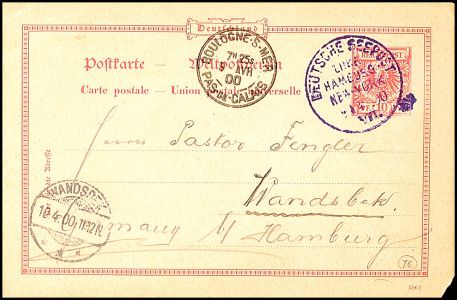 Deutschland
Postkarte — Weltpostverein
Carte postale — Union postale universelle
BOULOGNE-S-MER
7H 25
AVR
00
PAS-DE-CALAIS
DEUTSCHE SEEPOST
LINIE
HAMBURG-
NEW-YORK
Herrn Pastor Fengler
Wandsbek
Germany b/ Hamburg
WANDSBEK
10.4.00. 11-12N.
76